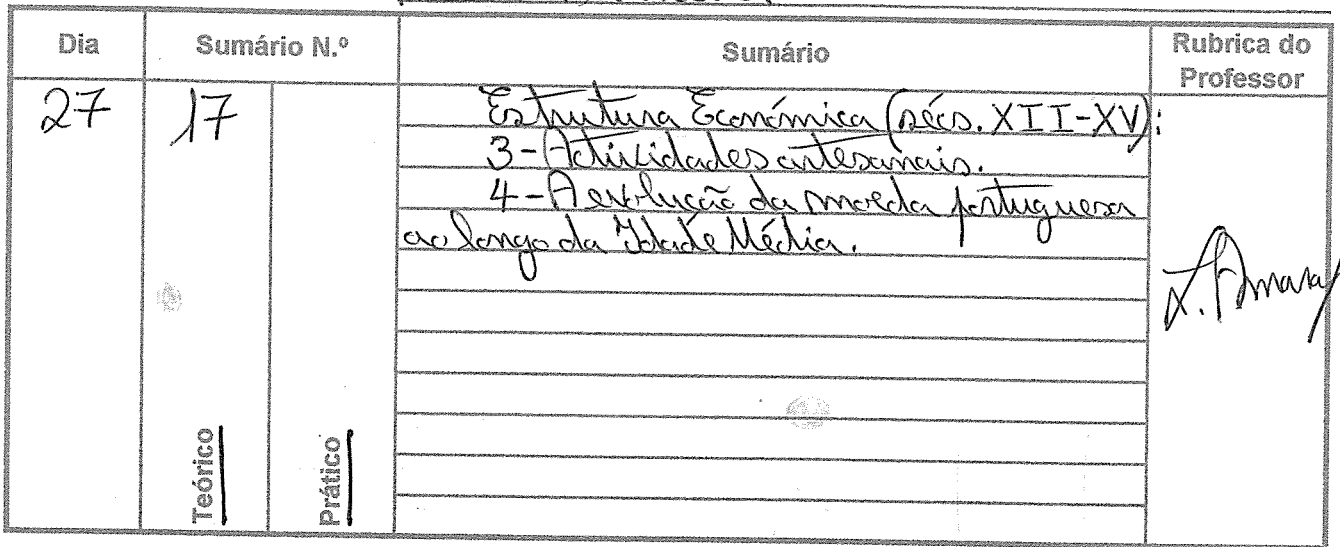 Dia Sumário N.º Sumário Rubrica do Professor
27 17 Estrutura Económica (sécs. XII-XV):
3-Actividades artesanais.
4-A evolução da moeda portuguesa
ao longo da Idade Média.
L. Amaral
Teórico Prático